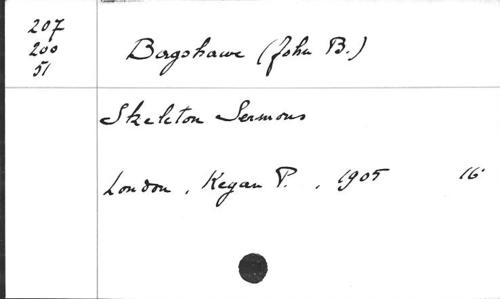 207
200
51
Bagshawe (John B.)
Skeleton Sermons
London, Kegan P., 1905 16°